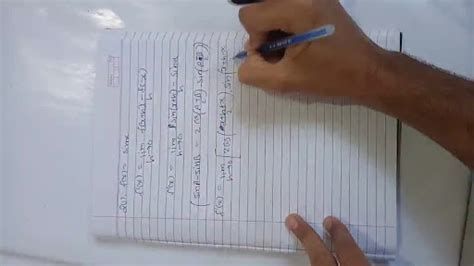 f(x) = sinx
f'(x) = lim h→0 f(x+h) - f(x) / h
f'(x) = lim h→0 sin(x+h) - sinx / h
(sinA - sinB = 2cos(A+B/2) · sin(A-B/2))
f'(x) = lim h→0 [2cos(x+h+x) · sin(x+h-x